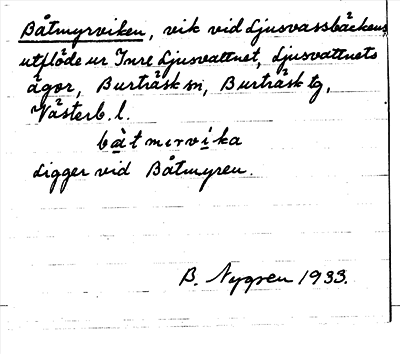 Båtmyrviken, vik vid Ljusvassbäckens
utflöde ur Inre Ljusvattnet, Ljusvattnets
ägor, Burträsk sn, Burträsk tg,
Västerb. l.
bàtmırvika
Ligger vid Båtmyren.
B. Nygren 1933.